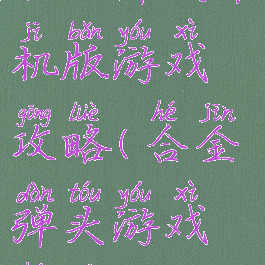 jī bǎn yóu xì
机版游戏
gōng lüè hé jīn
攻略(合金
dàn tóu yóu xì
弹头游戏